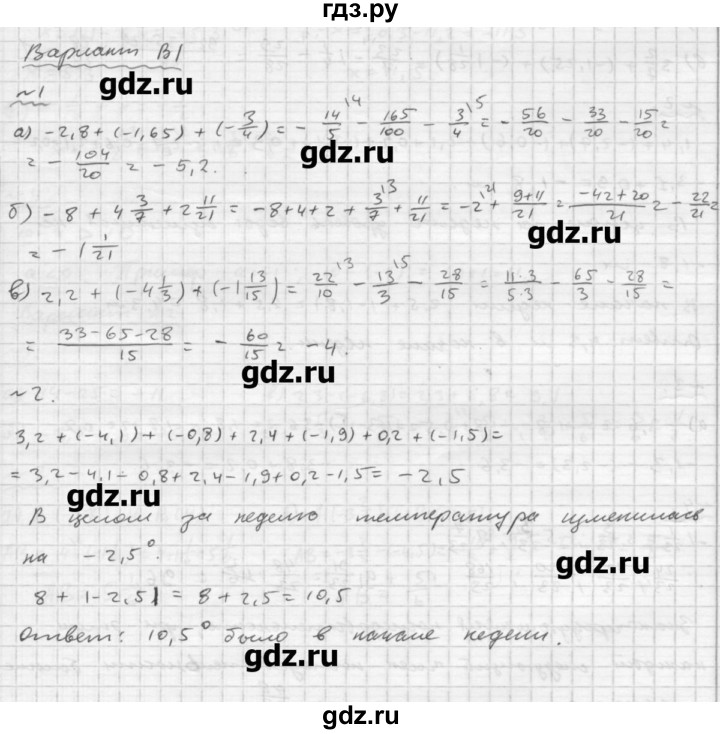 гдз.ру
Вариант В1
№1
а) -2,8 + (-1,65) + (-3/4) = - 14/5 \4 - 165/100 - 3/4 \5 = - 56/20 - 33/20 - 15/20 =
= - 104/20 = - 5,2.
б) - 8 + 4 3/7 + 2 11/21 = -8+4+2 + 3/7 \3 + 11/21 = -2 \21 + 9+11/21 = -42+20/21 = - 22/21 =
= - 1 1/21
в) 2,2 + (-4 1/3) + (-1 13/15) = 22/10 \3 - 13/3 \5 - 28/15 = 11·3/5·3 - 65/3 - 28/15 =
= 33-65-28/15 = - 60/15 = -4.
№2.
3,2 + (-4,1) + (-0,8) + 2,4 + (-1,9) + 0,2 + (-1,5) =
= 3,2 - 4,1 - 0,8 + 2,4 - 1,9 + 0,2 - 1,5 = - 2,5
В целом за неделю температура изменилась
на - 2,5°.
8 + |-2,5| = 8 + 2,5 = 10,5
Ответ: 10,5° было в начале недели.
gdz.ru
gdz.ru
gdz.ru
gdz.ru
gdz.ru
gdz.ru
gdz.ru
gdz.ru